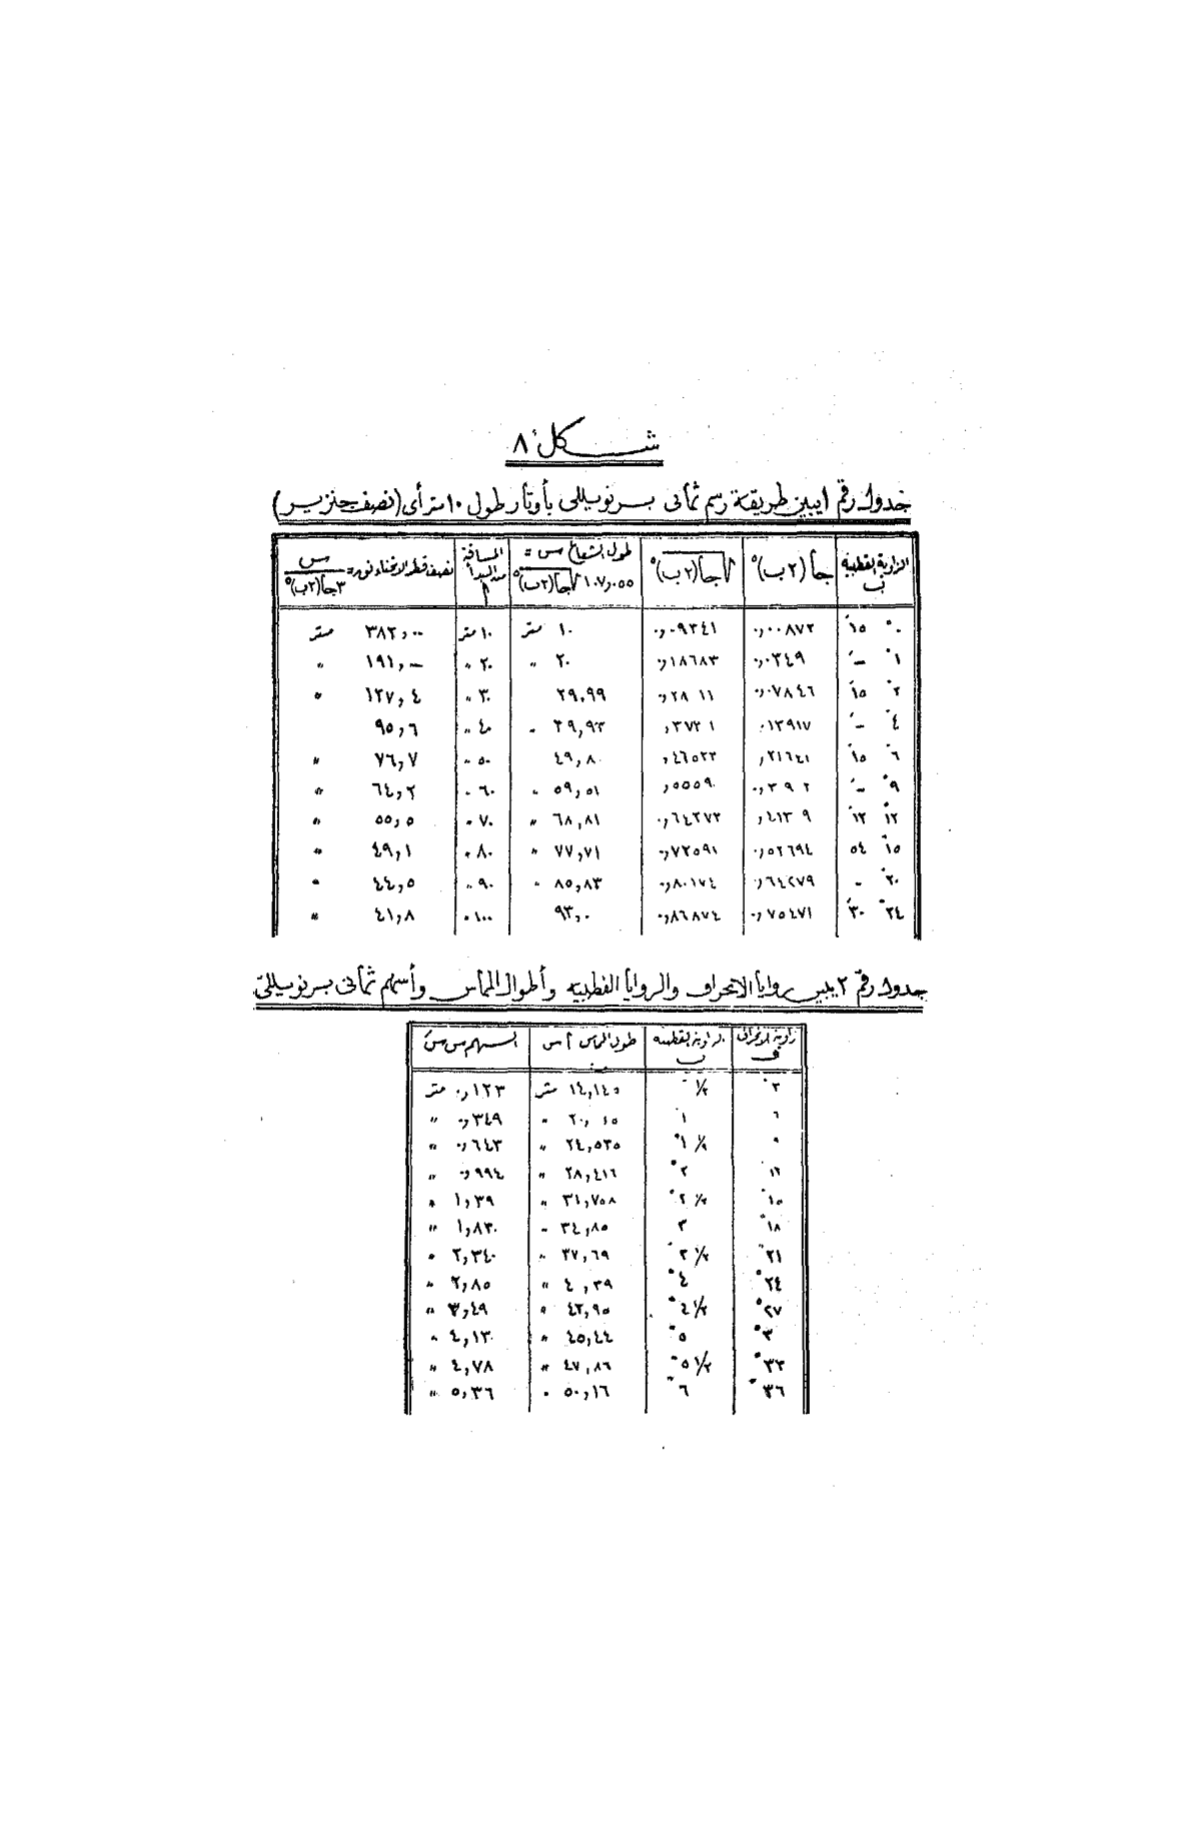 شكل ٨
جدول رقم ١ يبين طريقة رسم ثمانى برنويللى بأوتار طول ١٠ متر أى (نصف جنزير)
الزاوية القطبية ب | جا (٢ب)° | √جا(٢ب)° | طول الشعاع س = ١٠٧,٠٥٥ √جا(٢ب)° | المسافة من المبدأ م | نصف قطر الانحناء نور = س / ٣جا(٢ب)°
٠° ١٥َ | ٠,٠٠٨٧٢ | ٠,٠٩٣٤١ | ١٠ متر | ١٠ متر | ٣٨٢,٠٠ متر
١° –َ | ٠,٠٣٤٩ | ٠,١٨٦٨٣ | ٢٠ " | ٢٠ " | ١٩١,– "
٢° ١٥َ | ٠,٠٧٨٤٦ | ٠,٢٨٠١١ | ٢٩,٩٩ | ٣٠ " | ١٢٧,٤ "
٤° –َ | ٠,١٣٩١٧ | ,٣٧٣٠١ | ٣٩,٩٣ " | ٤٠ " | ٩٥,٦
٦° ١٥َ | ,٢١٦٤١ | ,٤٦٥٢٣ | ٤٩,٨٠ | ٥٠ " | ٧٦,٧ "
٩° –َ | ٠,٣٠٩٠٢ | ,٥٥٥٩٠ | ٥٩,٥١ " | ٦٠ " | ٦٤,٢ "
١٢° ١٣َ | ,٤١٣٠٩ | ٠,٦٤٢٧٢ | ٦٨,٨١ " | ٧٠ " | ٥٥,٥ "
١٥° ٥٤ | ٠,٥٢٦٩٤ | ٠,٧٢٥٩١ | ٧٧,٧١ " | ٨٠ " | ٤٩,١ "
٢٠° – | ٠,٦٤٢٧٩ | ٠,٨٠١٧٤ | ٨٥,٨٣ " | ٩٠ " | ٤٤,٥ "
٢٤° ٣٠َ | ٠,٧٥٤٧١ | ٠,٨٦٨٧٤ | ٩٣,٠ | ١٠٠ " | ٤١,٨ "
جدول رقم ٢ يبين زوايا الانحراف والزوايا القطبية وأطوال المماس وأسهم ثمانى برنويللى
زاوية الانحراف ف | الزاوية القطبية ب | طول المماس أ س | السهم س سَ
٣° | ½° | ١٤,١٤٥ متر | ٠,١٢٣ متر
٦ | ١° | ٢٠,٠١٥ " | ٠,٣٤٩ "
٩° | ١½° | ٢٤,٥٣٥ " | ٠,٦٤٣ "
١٢ | ٢° | ٢٨,٤١٦ " | ٠,٩٩٤ "
١٥° | ٢½° | ٣١,٧٥٨ " | ١,٣٩ "
١٨° | ٣ | ٣٤,٨٥ " | ١,٨٣٠ "
٢١° | ٣½° | ٣٧,٦٩ " | ٢,٣٤٠ "
٢٤° | ٤° | ٤٠,٣٩ " | ٢,٨٥ "
٢٧° | ٤½° | ٤٢,٩٥ " | ٣,٤٩ "
٣٠° | ٥° | ٤٥,٤٤ " | ٤,١٣٠ "
٣٣° | ٥½° | ٤٧,٨٦ " | ٤,٧٨ "
٣٦° | ٦° | ٥٠,١٦ " | ٥,٣٦ "